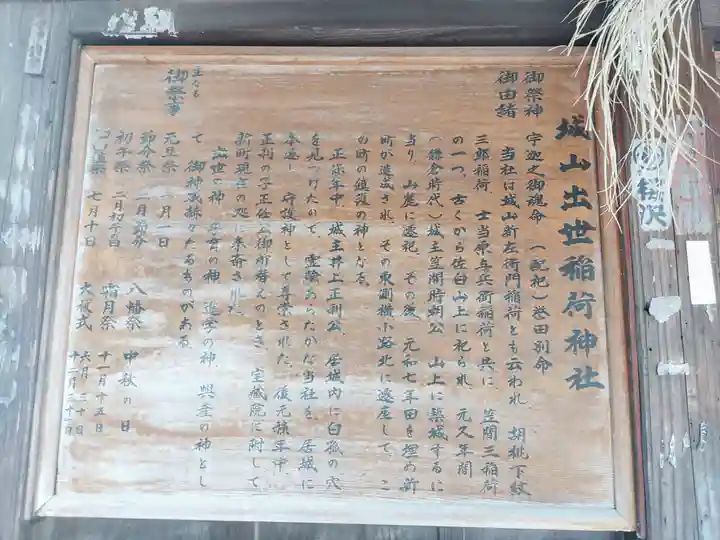 城山出世稲荷神社
御祭神 宇迦之御魂命 (配祀)誉田別命
御由緒
当社は城山新左衛門稲荷とも云われ 胡桃下紋
三郎稲荷 士当原与兵衛稲荷と共に 笠間三稲荷
の一つ、古くから佐白山上に祀られ 元久年間
(鎌倉時代)城主笠間時朝公 山上に築城するに
当り 山麓に遷祀 その後、元和七年田を埋め新
町が造成され、その東側横小路北に遷座して、こ
の町の鎮護の神となる。
正弥年中、城主井上正利公、居城内に白狐の穴
を見つけたので、霊験あらたかな当社を、居城に
奉遷し 守護神として尊崇された、復元禄年中、
正利の子正任公御所替えのとき、宝蔵院に附して
新町現在の処に奉斎された。
出世の神、昇官の神 進学の神、興産の神とし
て 御神威赫々たるものがある。
主なる
御祭事
元旦祭 一月一日 八幡祭 中秋の日
節分祭 二月節分 霜月祭 十一月十五日
初午祭 二月初午日 大祓式 六月三十日
七月十日 十二月三十一日